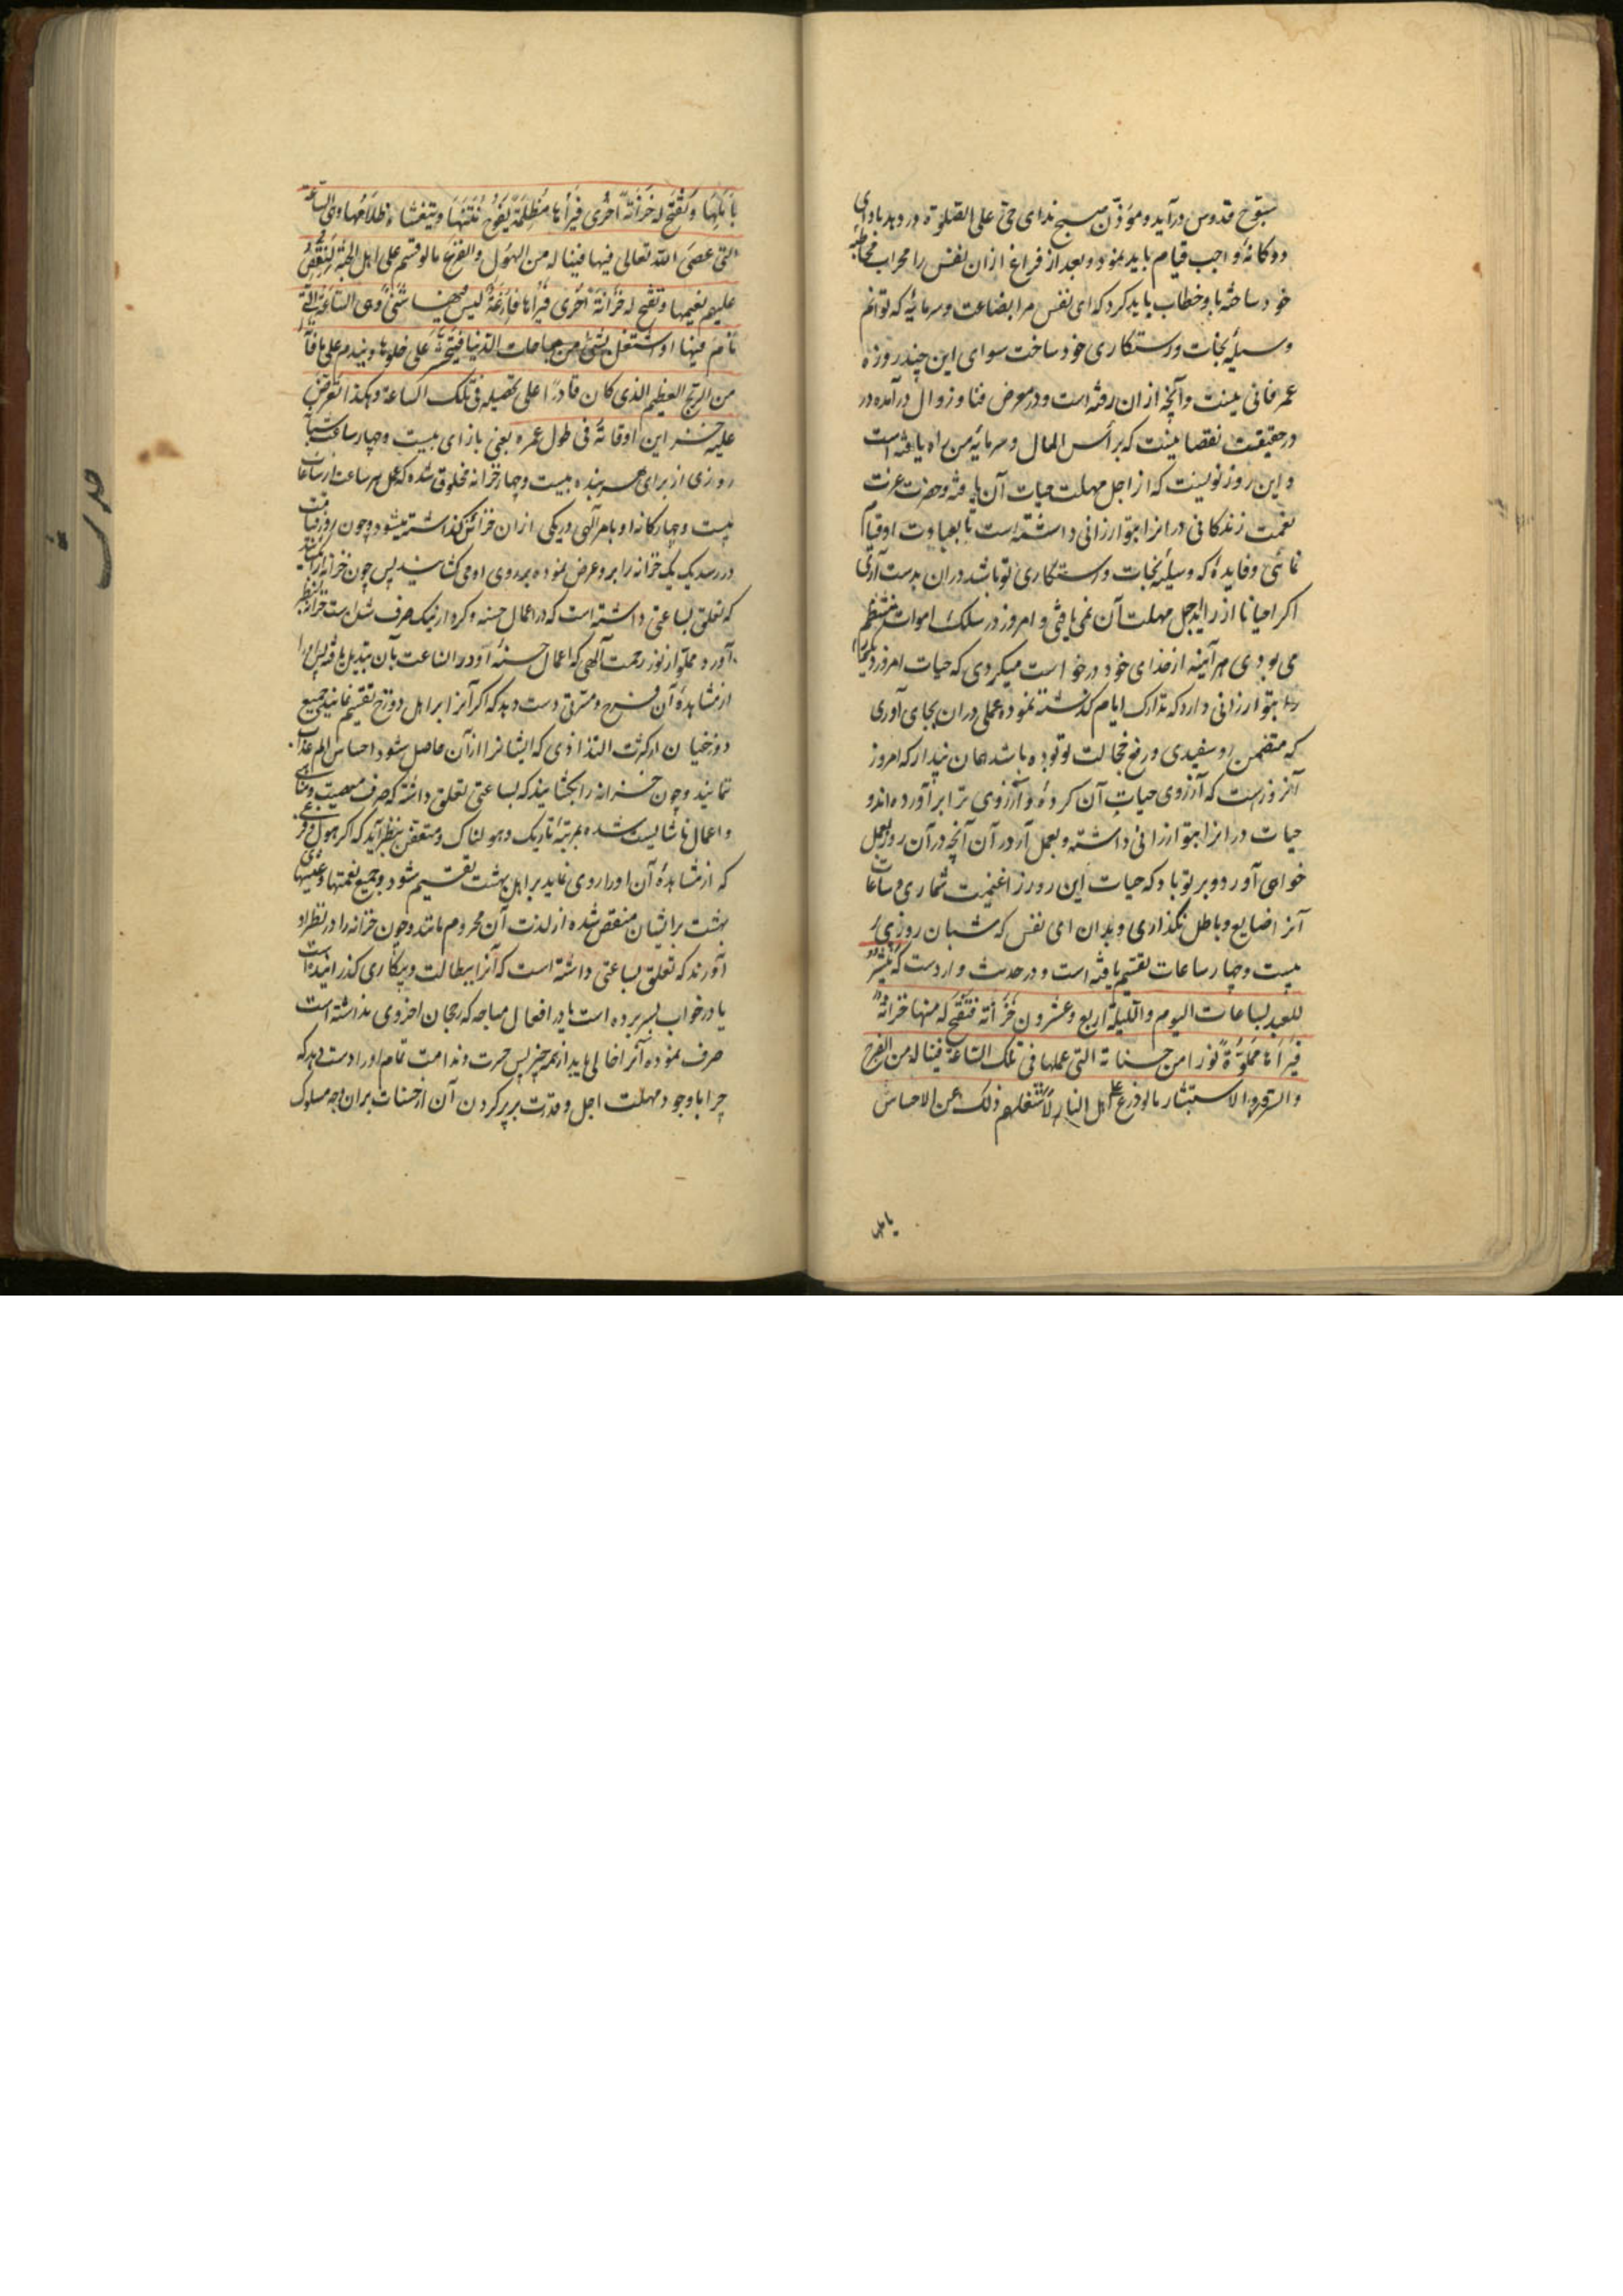 سبوح قدوس درآید و مؤذن صبح ندای حی علی الصلوة در دهد بادای
دوکانهٔ واجب قیام باید نمود و بعد از فراغ ازان نفس را محراب مخاطبه
خود ساخته با و خطاب باید کرد که ای نفس مرا بضاعت و سرمایهٔ که توانم
وسیلهٔ نجات و رستکاری خود ساخت سوای این چند روزه
عمر فانی نیست و آنچه ازان رفته است و در معرض فنا و زوال درآمده در
در حقیقت نقصانیست که برأس المال و سرمایهٔ من راه یافته است
و این روز نویست که از اجل مهلت حیات آن یافته و حضرت عزت
نعمت زندکانی درانرا بتو ارزانی داشته است تا بعبادت او قیام
نمائی و فایدهٔ که وسیلهٔ نجات و رستکاری تو باشد دران بدست آری
اکر احیانا از راید اجل مهلت آن نمی یافتی و امروز در سلک اموات منتظم
می بودی هر آینه از خدای خود درخواست میکردی که حیات امروز دیکر
را بتو ارزانی دارد که تدارک ایام کذشته نموده عملی دران بجای آوری
که متضمن رو سفیدی و رفع خجالت تو بوده باشد هان پندار که امروز
آنروز است که آرزوی حیات آن کردهٔ و آرزوی ترا برآورده اند و
حیات درانرا بتو ارزانی داشته و بعمل آر درآن آنچه درآن روز بعمل
خواهی آورد و بر تو باد که حیات این روز را غنیمت شماری و ساعات
آنرا ضایع و باطل نکذاری و بدان ای نفس که شبان روزی
بیست و چهار ساعات تقسیم یافته است و در حدیث وارد است که ینشر
للعبد بساعات الیوم و اللیلة اربع و عشرون خزانة فتفتح له منها خزانة
فیراها مملوّة نورا من حسناته التی عملها فی تلک الساعة فیناله من الفرح
والسرور والاستبشار مالو وزع علی اهل النار لاشغلهم ذلک عن الاحساس
بالمها و تفتح له خزانة اخری فیراها مظلمة یفوح نتنها و یتغشاه ظلامها و هی الساعة
التی عصی الله تعالی فیها فیناله من الهول والفزع مالو قسم علی اهل الجنة لنغّص
علیهم نعیمها و تفتح له خزانة اخری فیراها فارغة لیس فیها شئ و هی الساعة التی
نام فیها او اشتغل بشئ من مباحات الدنیا فیتحسّر علی خلوها و یندم علی ما فاته
من الربح العظیم الذی کان قادرا علی تحصیله فی تلک الساعة و هکذا تعرض
علیه خزاین اوقاته فی طول عمره یعنی بازای بیست و چهار ساعت شبان
روزی از برای هر بنده بیست و چهار خزانه مخلوق شده که عمل هر ساعت از ساعات
بیست و چهارکانه او بامر الهی در یکی ازان خزائن کذاشته میشود و چون روز قیامت
در رسد یک یک خزانه را برو عرض نموده بر روی او می کشایند پس چون خزانه را بکشایند
که تعلق بساعتی داشته است که در اعمال حسنه و کردار نیک صرف شده است خزانه بنظر
آورد مملو از نور رحمت الهی که اعمال حسنهٔ او در انساعت بآن تبدیل یافته پس او را
از مشاهدهٔ آن فرح و مسرتی دست دهد که اکر آنرا بر اهل دوزخ تقسیم نمایند جمیع
دوزخیان از کثرت التذاذی که ایشانرا ازآن حاصل شود احساس الم عذاب
ننمایند و چون خزانه را بکشایند که بساعتی تعلق داشته که صرف معصیت و مناهی
و اعمال ناشایست شده بمرتبهٔ تاریک و هولناک و متعفن بنظر آید که اکر هول و فزعی
که از مشاهدهٔ آن او را روی نماید بر اهل بهشت تقسیم شود جمیع نعمتها و عیشهای
بهشت برایشان منغص شده از لذت آن محروم مانند و چون خزانه را در نظر او
آورند که تعلق بساعتی داشته است که آنرا ببطالت و بیکاری کذرانیده است
یا در خواب بسر برده است یا در افعال مباحه که رجحان اخروی نداشته است
صرف نموده آنرا خالی یابد از همه چیز پس حسرت و ندامت تمام او را دست دهد که
چرا با وجود مهلت اجل و قدرت بر پر کردن آن از حسنات بران وجه مسلوک